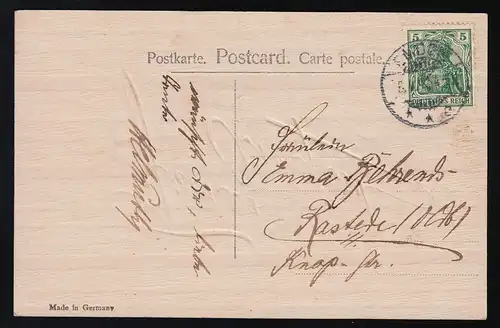 Postkarte. Postcard. Carte postale
5
DEUTSCHES REICH
wünscht Dir, liebe
Fräulein
Emma Behrends
Rastede (Old)
Knop-Str.
Made in Germany